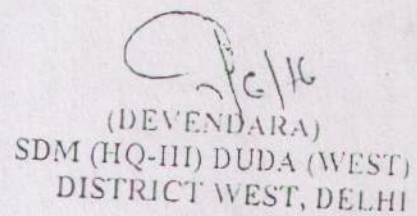 (DEVENDARA)
SDM (HQ-III) DUDA (WEST)
DISTRICT WEST, DELHI